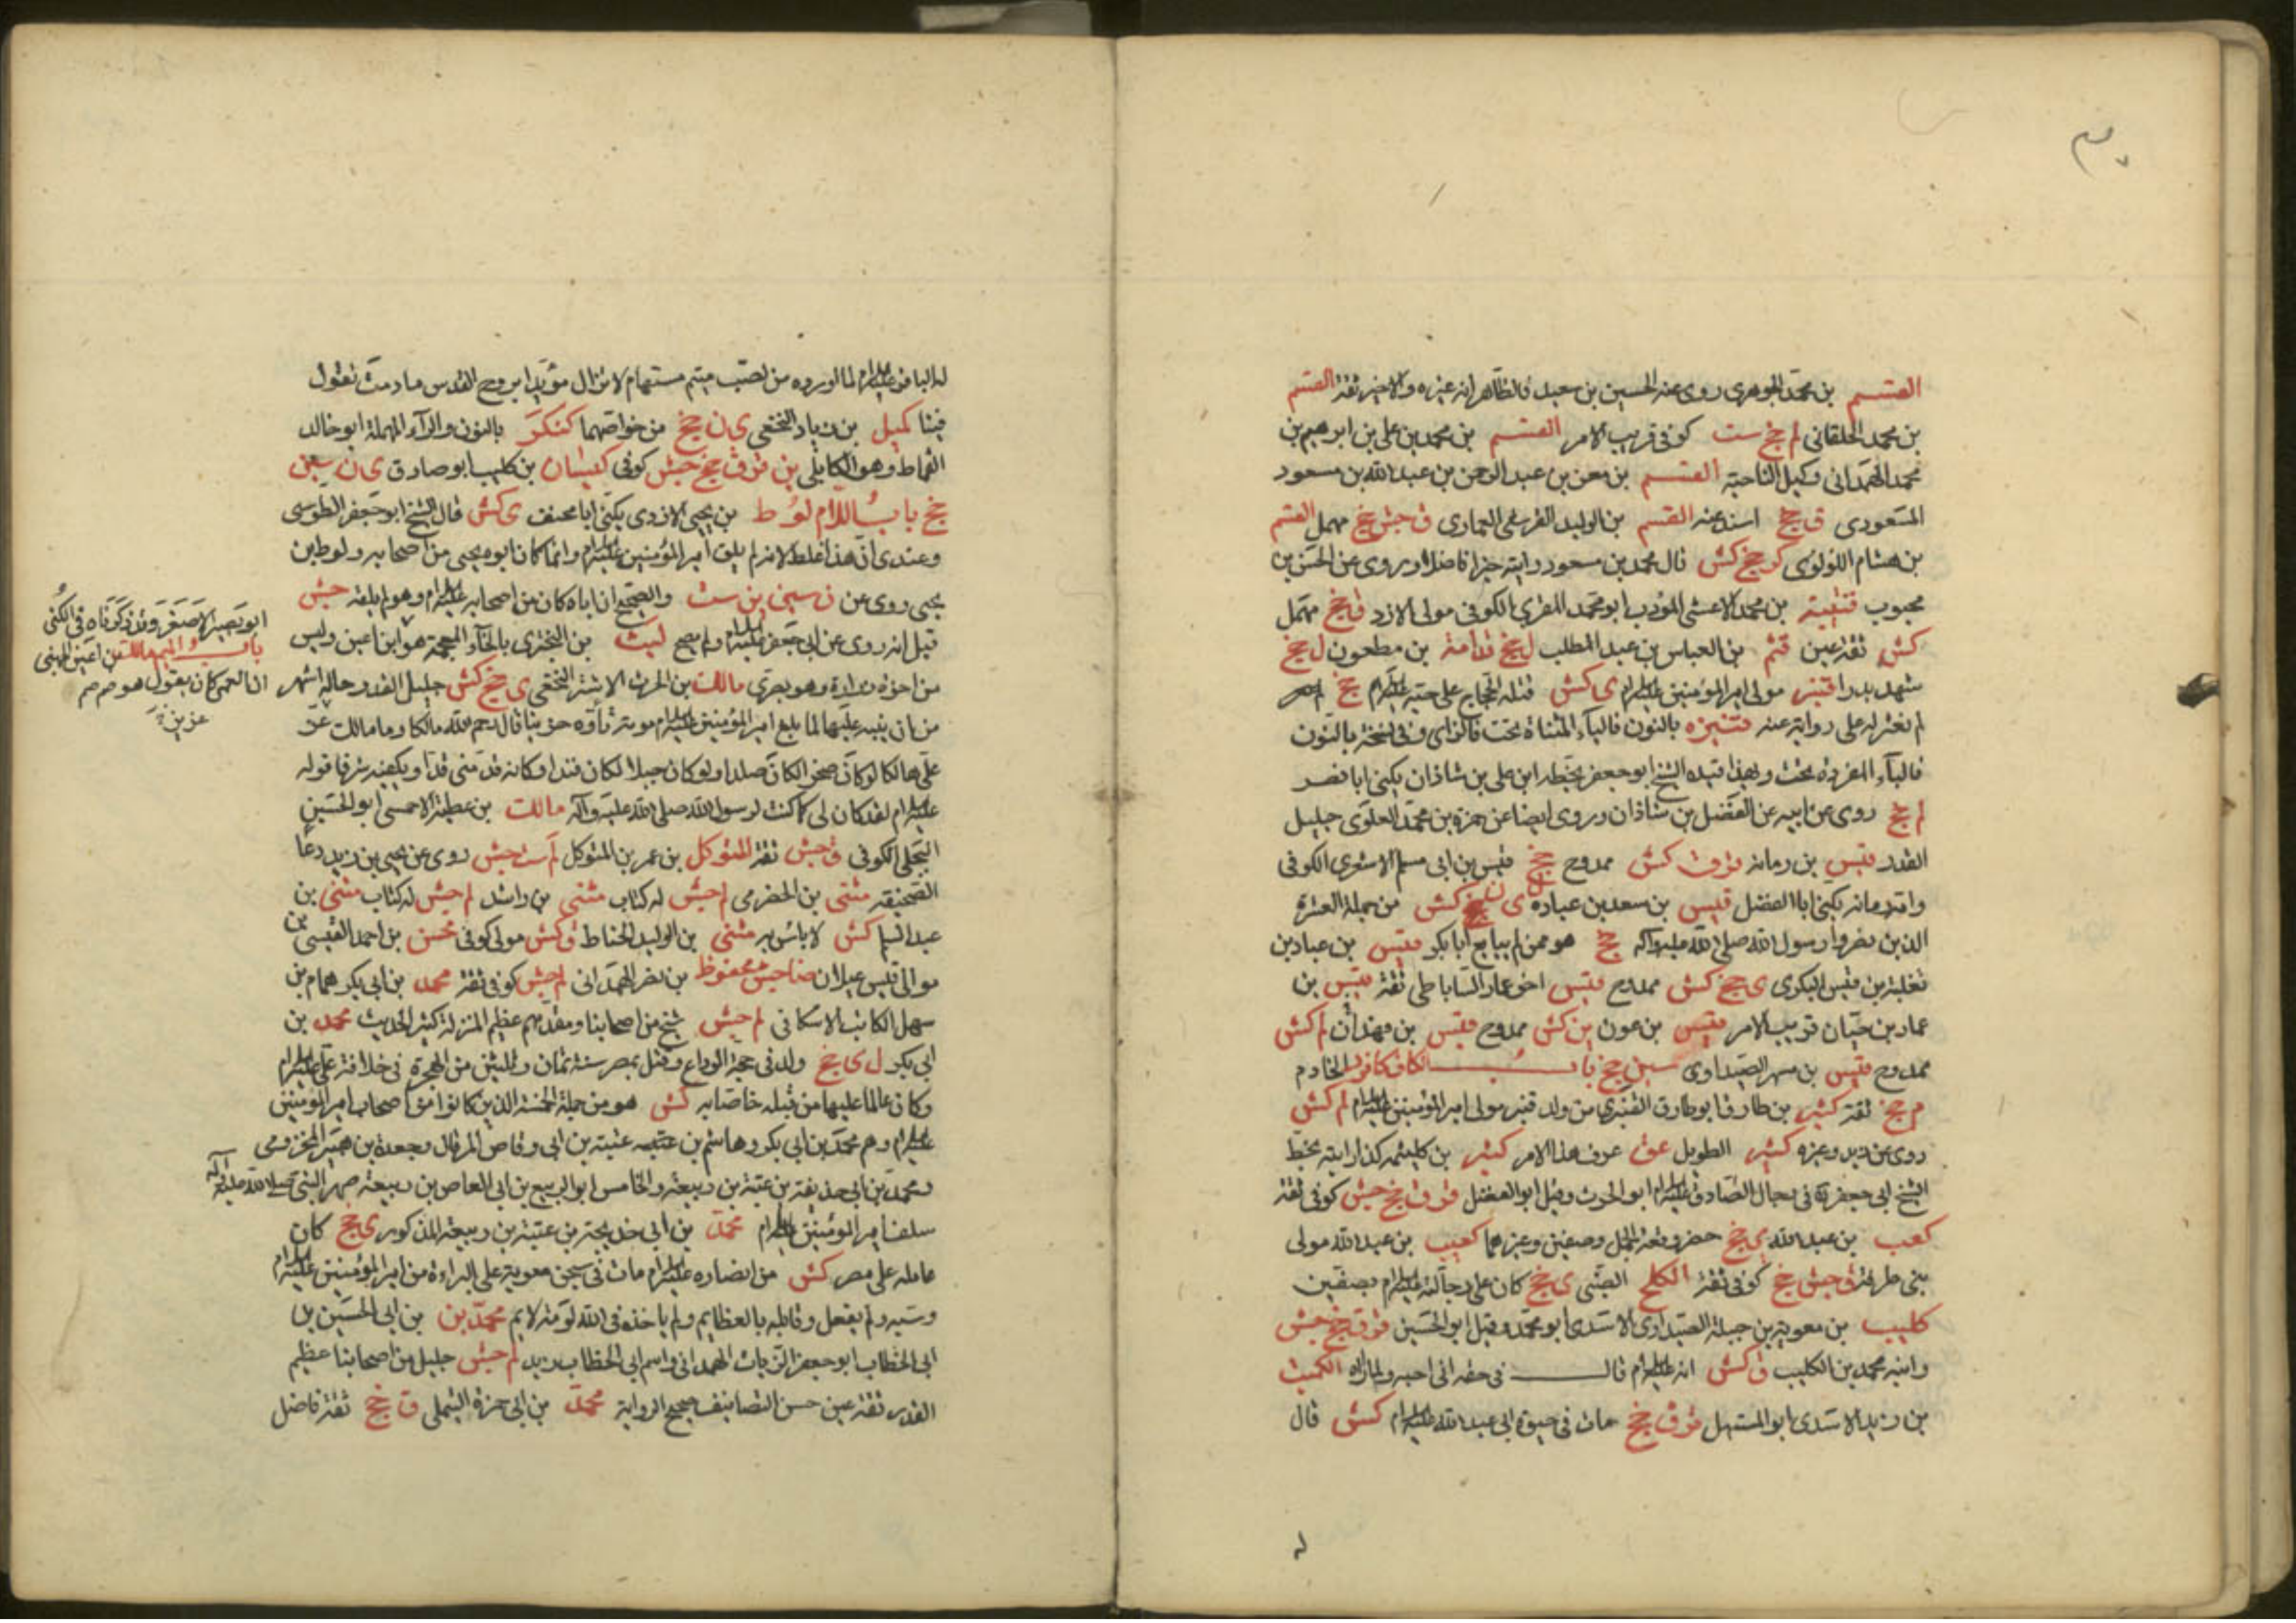 القسم بن محمد الجوهري روى عنه الحسين بن سعيد فالظاهر انه غيره والاخير ثقة القسم
بن محمد الخلقاني لم جخ ست كوفي قريب الامر القسم بن محمد بن علي بن ابرهيم بن
محمد الهمداني وكيل الناحية القسم بن معن بن عبد الرحمن بن عبد الله بن مسعود
المسعودي ق جخ اسند عنه القسم بن الوليد القرشي العماري ق جش جخ مهمل القسم
بن هشام اللؤلؤي كر جخ كش قال محمد بن مسعود رايته خيرا فاضلا وروى عن الحسن بن
محبوب قتيبة بن محمد الاعشى المؤدب ابو محمد المقري الكوفي مولى الازد ق جخ مهمل
كش ثقة عين قثم بن العباس بن عبد المطلب ل جخ قدامة بن مظعون ل جخ
شهد بدرا قنبر مولى امير المؤمنين عليه السلام ى كش قتله الحجاج على حبه عليه السلام جخ
لم نعثر له على رواية عنه قنبره بالنون فالياء المثناة تحت فالزاي وفي نسخة بالنون
فالباء المفردة تحت وبهذا قيده الشيخ ابو جعفر بخطه ابن علي بن شاذان يكنى ابا نصر
لم جخ روى عن ابيه عن الفضل بن شاذان وروى ايضا عن حمزة بن محمد العلوي جليل
القدر قيس بن رمانه قر ق كش ممدوح جخ قيس بن ابي مسلم الاشعري الكوفي
وابو رمانه يكنى ابا المفضل قيس بن سعد بن عباده ل ى ن جخ كش من جملة العشرة
الذين نصروا رسول الله صلى الله عليه وآله جخ هو ممن لم يبايع ابا بكر قيس بن عباد بن
ثعلبة بن قيس البكري ى جخ كش ممدوح قيس اخو عمار الساباطي ثقة قيس بن
عمار بن حيان قريب الامر قيس بن عون ين كش ممدوح قيس بن فهدان لم كش
ممدوح قيس بن مسهر الصيداوي سين جخ باب الكاف كافور الخادم
م جخ ثقة كثير بن طارق ابو طارق القنبري من ولد قنبر مولى امير المؤمنين عليه السلام لم كش
روى عن زيد وغيره كثير الطويل عق عرف هذا الامر كثير بن كلثمه كذا رايته بخط
الشيخ ابي جعفر في رجال الصادق عليه السلام ابو الحرث وقيل ابو الفضل قر ق جخ جش كوفي ثقة
كعب بن عبد الله ى جخ حضر وقعة الجمل وصفين وغيرهما كعيب بن عبد الله مولى
بني طرفة ق جش جخ كوفي ثقة الكلح الضبي ى جخ كان على رجالته عليه السلام بصفين
كليب بن معوية بن جبلة الصيداوي الاسدي ابو محمد وقيل ابو الحسين قر ق جخ جش
وابنه محمد بن الكليب ق كش انه عليه السلام قال في حقه اني احبه ولم اره الكميت
بن زيد الاسدي ابو المستهل قر ق جخ مات في حيوة ابي عبد الله عليه السلام كش قال
له الباقر عليه السلام لما اورده من لصب متيم مستهام لا تزال مؤيدا بروح القدس ما دمت تقول
فينا كميل بن زياد النخعي ى ن جخ من خواصهما كنكر بالنون والراء المهملة ابو خالد
القماط وهو الكابلي ين قر ق جخ جش كوفي كيسان بن كليب ابو صادق ى ن سين
جخ باب اللام لوط بن يحيى الازدي يكنى ابا مخنف ى كش قال الشيخ ابو جعفر الطوسي
وعندي ان هذا غلط لانه لم يلق امير المؤمنين عليه السلام وانما كان ابوه يحيى من اصحابه ولوط بن
يحيى روى عن ن سين ين ست والصحيح ان اباه كان من اصحابه عليه السلام وهو لم يلقه جش
قيل انه روى عن ابي جعفر عليه السلام ولم يصح ليث بن البختري بالخاء المعجمة هو ابن اعين وليس
من اخوة زرارة وهو بصري مالك بن الحرث الاشتر النخعي ى جخ كش جليل القدر حاله اشهر
من ان ينبه عليها لما بلغ امير المؤمنين عليه السلام موته تأوه حزينا قال رحم الله مالكا وما مالك عز
على هالكا لو كان صخرا لكان صلدا ولو كان جبلا لكان فندا وكانه قد مني قدا ويكفيه شرفا قوله
عليه السلام لقد كان لي كما كنت لرسول الله صلى الله عليه وآله مالك بن عطية الاحمسي ابو الحسين
البجلي الكوفي ق جش ثقة المتوكل بن عمر بن المتوكل لم ست جش روى عن يحيى بن زيد دعا
الصحيفة مثنى بن الحضرمي لم جش له كتاب مثنى بن راشد لم جش له كتاب مثنى بن
عبد السلام كش لا باس به مثنى بن الوليد الحناط ق كش مولى كوفي محسن بن احمد القيسي من
موالي قيس عيلان ضا جش محفوظ بن نصر الهمداني لم جش كوفي ثقة محمد بن ابي بكر همام بن
سهل الكاتب الاسكافي لم جش شيخ من اصحابنا ومقدمهم عظيم المنزلة كثير الحديث محمد بن
ابي بكر ل ى جخ ولد في حجة الوداع وقتل بمصر سنة ثمان وثلثين من الهجرة في خلافة علي عليه السلام
وكان عاملا عليها من قبله خاصا به كش هو من جملة الخمسة الذين كانوا من اصحاب امير المؤمنين
عليه السلام وهم محمد بن ابي بكر وهاشم بن عتبه عتبة بن ابي وقاص المرقال وجعدة بن هبيرة المخزومي
ومحمد بن ابي حذيفة بن عتبة بن ربيعة والخامس ابو الربيع بن ابي العاص بن ربيعة صهر النبي صلى الله عليه وآله
سلف امير المؤمنين عليه السلام محمد بن ابي حذيفة بن عتبة بن ربيعة المذكور ى جخ كان
عامله على مصر كش من انصاره عليه السلام مات في سجن معوية على البراءة من امير المؤمنين عليه السلام
وسبه ولم يفعل وقابله بالعظايم ولم ياخذه في الله لومة لايم محمد بن بن ابي الحسين بن
ابي الخطاب ابو جعفر الزيات الهمداني واسم ابي الخطاب زيد لم جش جليل من اصحابنا عظيم
القدر ثقة عين حسن التصانيف صحيح الرواية محمد بن ابي حمزة الثمالي ق جخ ثقة فاضل
ابو بصير الاصغر وقد ذكرناه في الكنى
باب الميم مالك بن اعين الجهني
عزيز